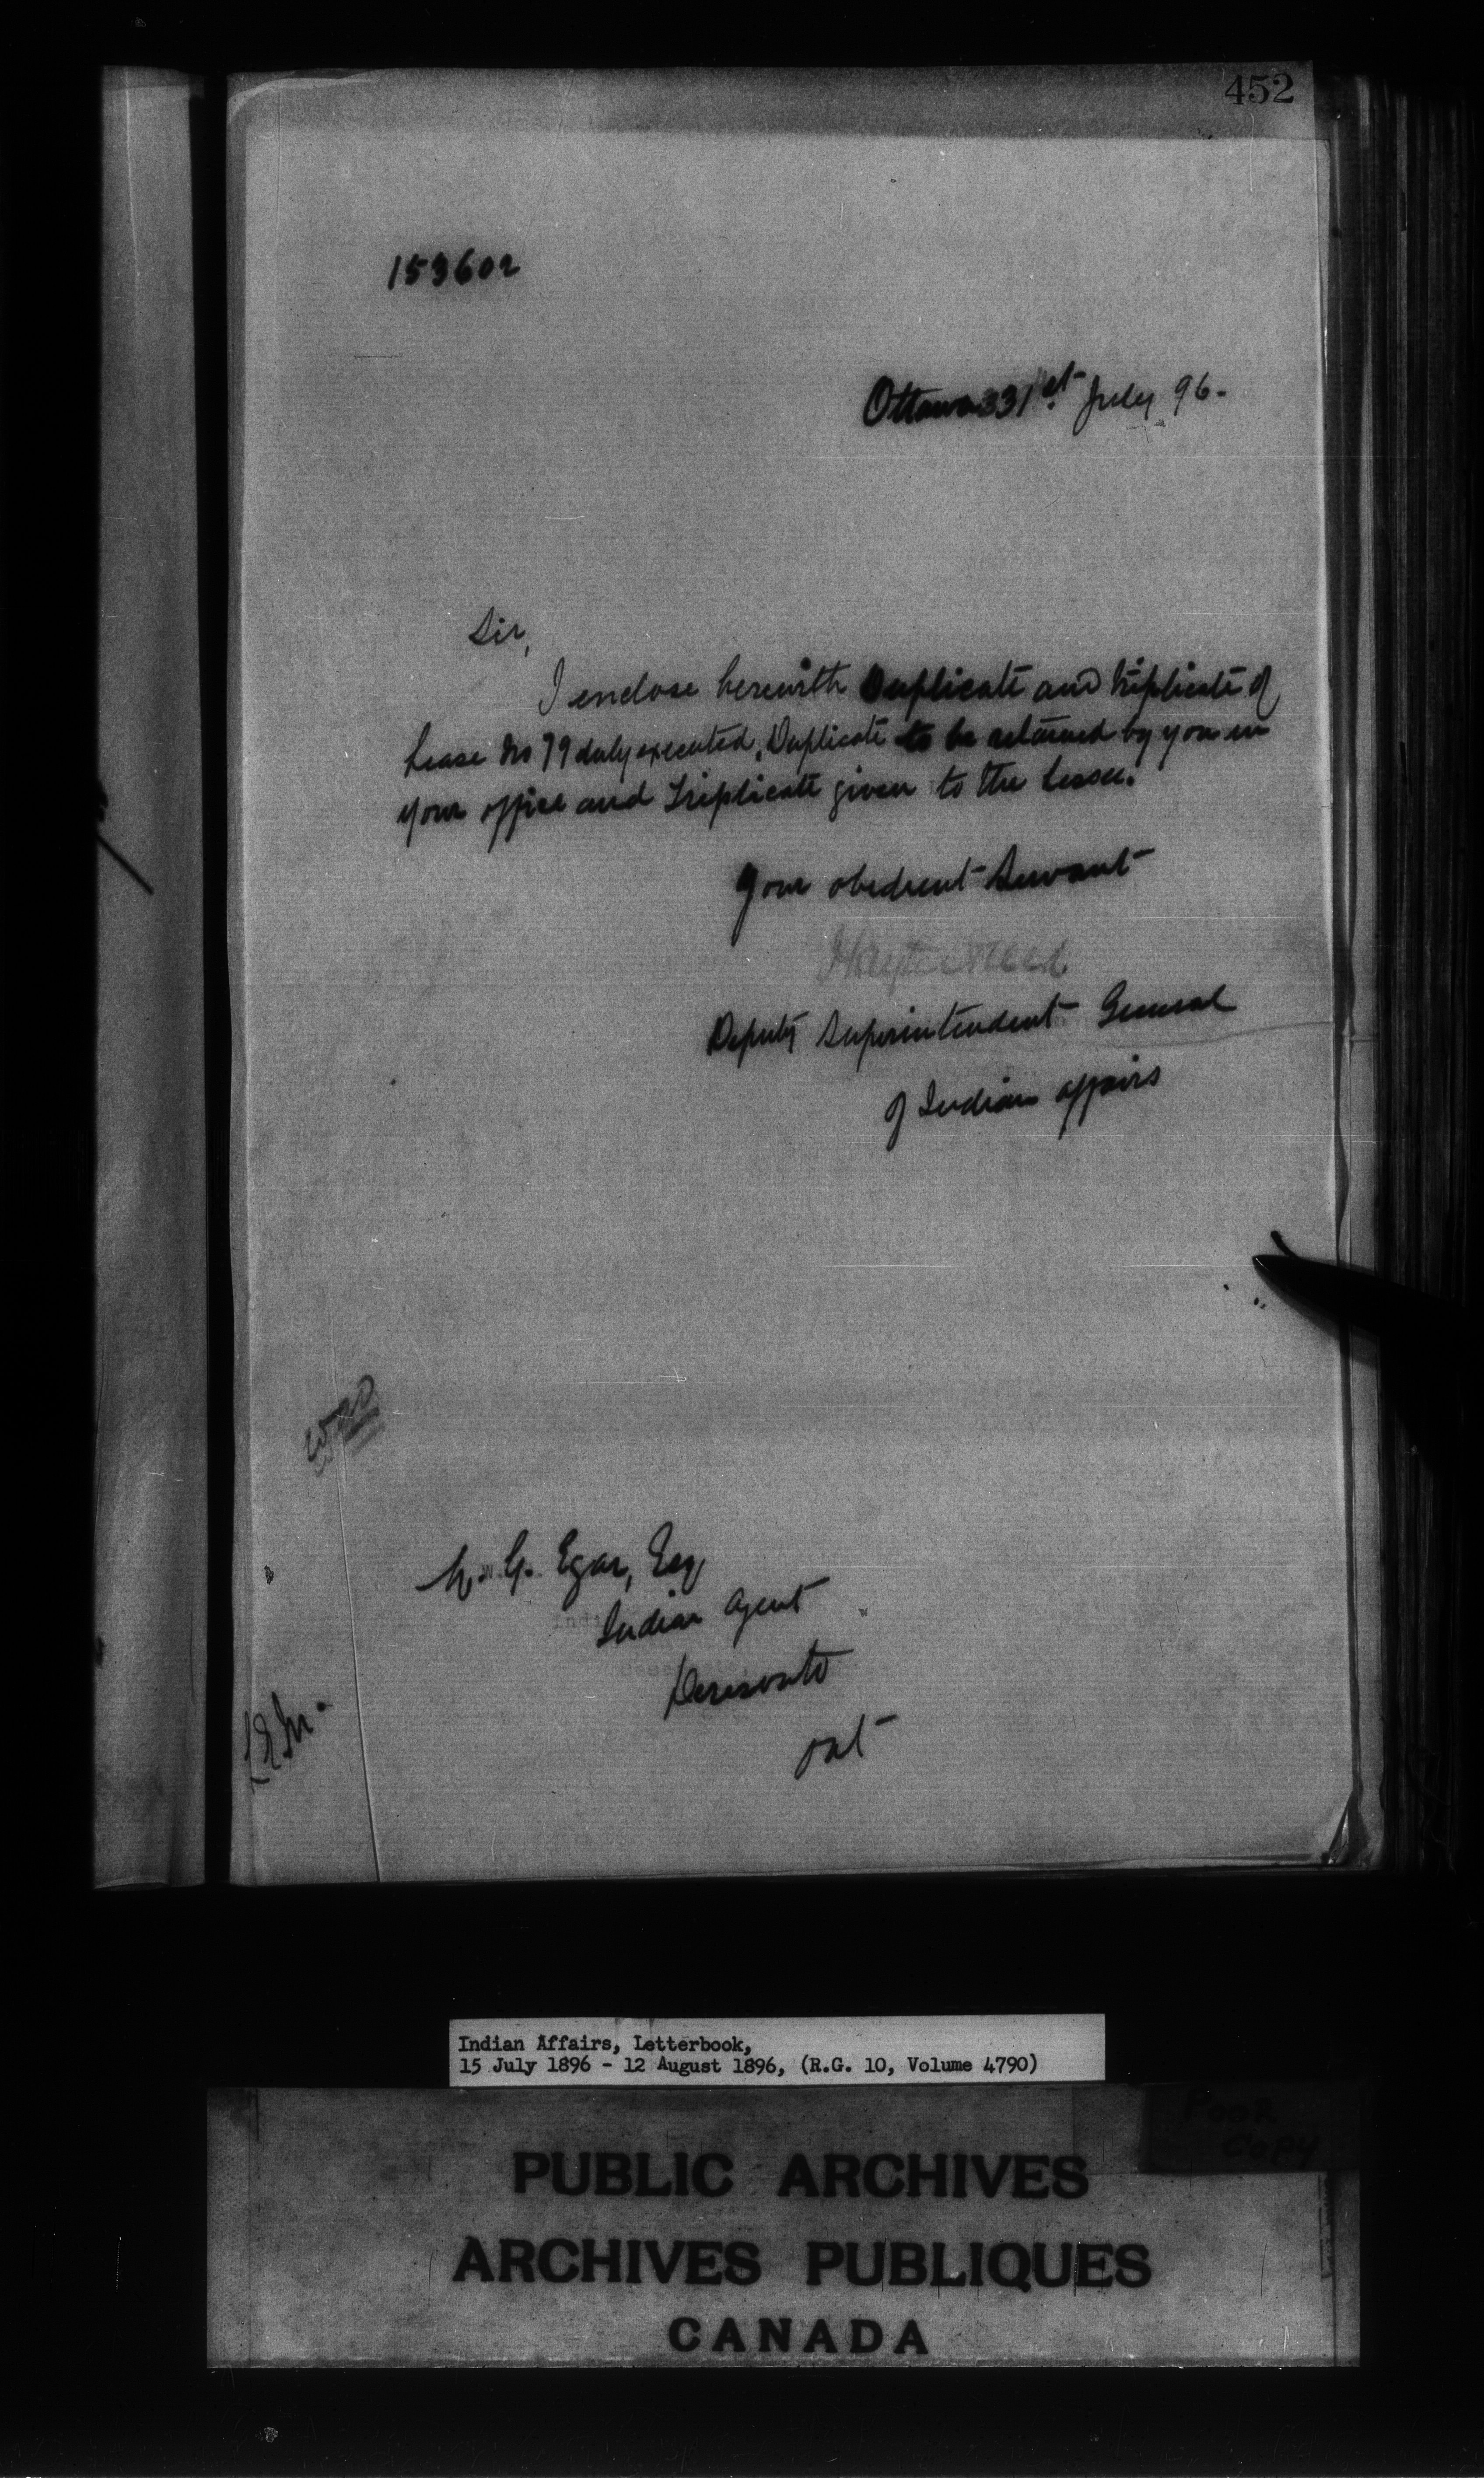 452
153602
Ottawa 331st July 96.
Sir,
I enclose herewith Duplicate and triplicate of
Lease No 79 duly executed, Duplicate to be retained by you in
your office and Triplicate given to the Lessee.
Your obedient Servant
Hayter Reed
Deputy Superintendent General
of Indian Affairs
G. Egar, Esq
Indian Agent
Deseronto
Ont
Indian Affairs, Letterbook,
15 July 1896 - 12 August 1896, (R.G. 10, Volume 4790)
POOR
COPY
PUBLIC ARCHIVES
ARCHIVES PUBLIQUES
CANADA